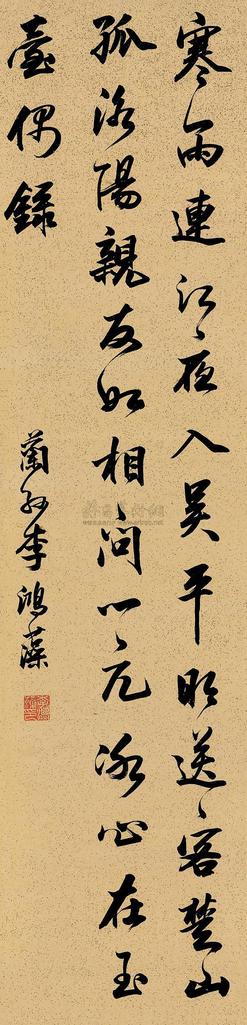 寒雨連江夜入吳平明送客楚山
孤洛陽親友如相問一片冰心在玉
壺偶錄
蘭孫李鴻藻